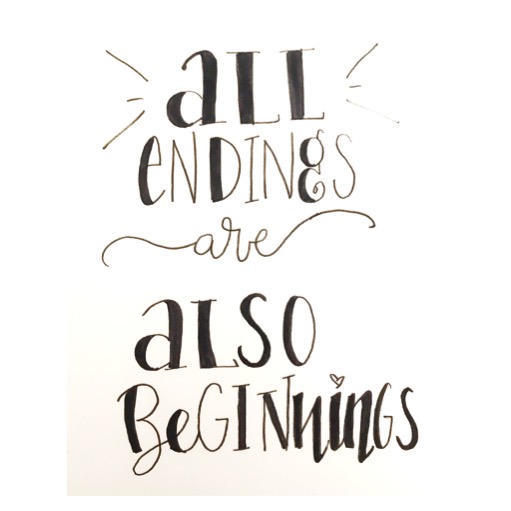 aLL
eNDINgS
are
aLSO
BeGINniNGS